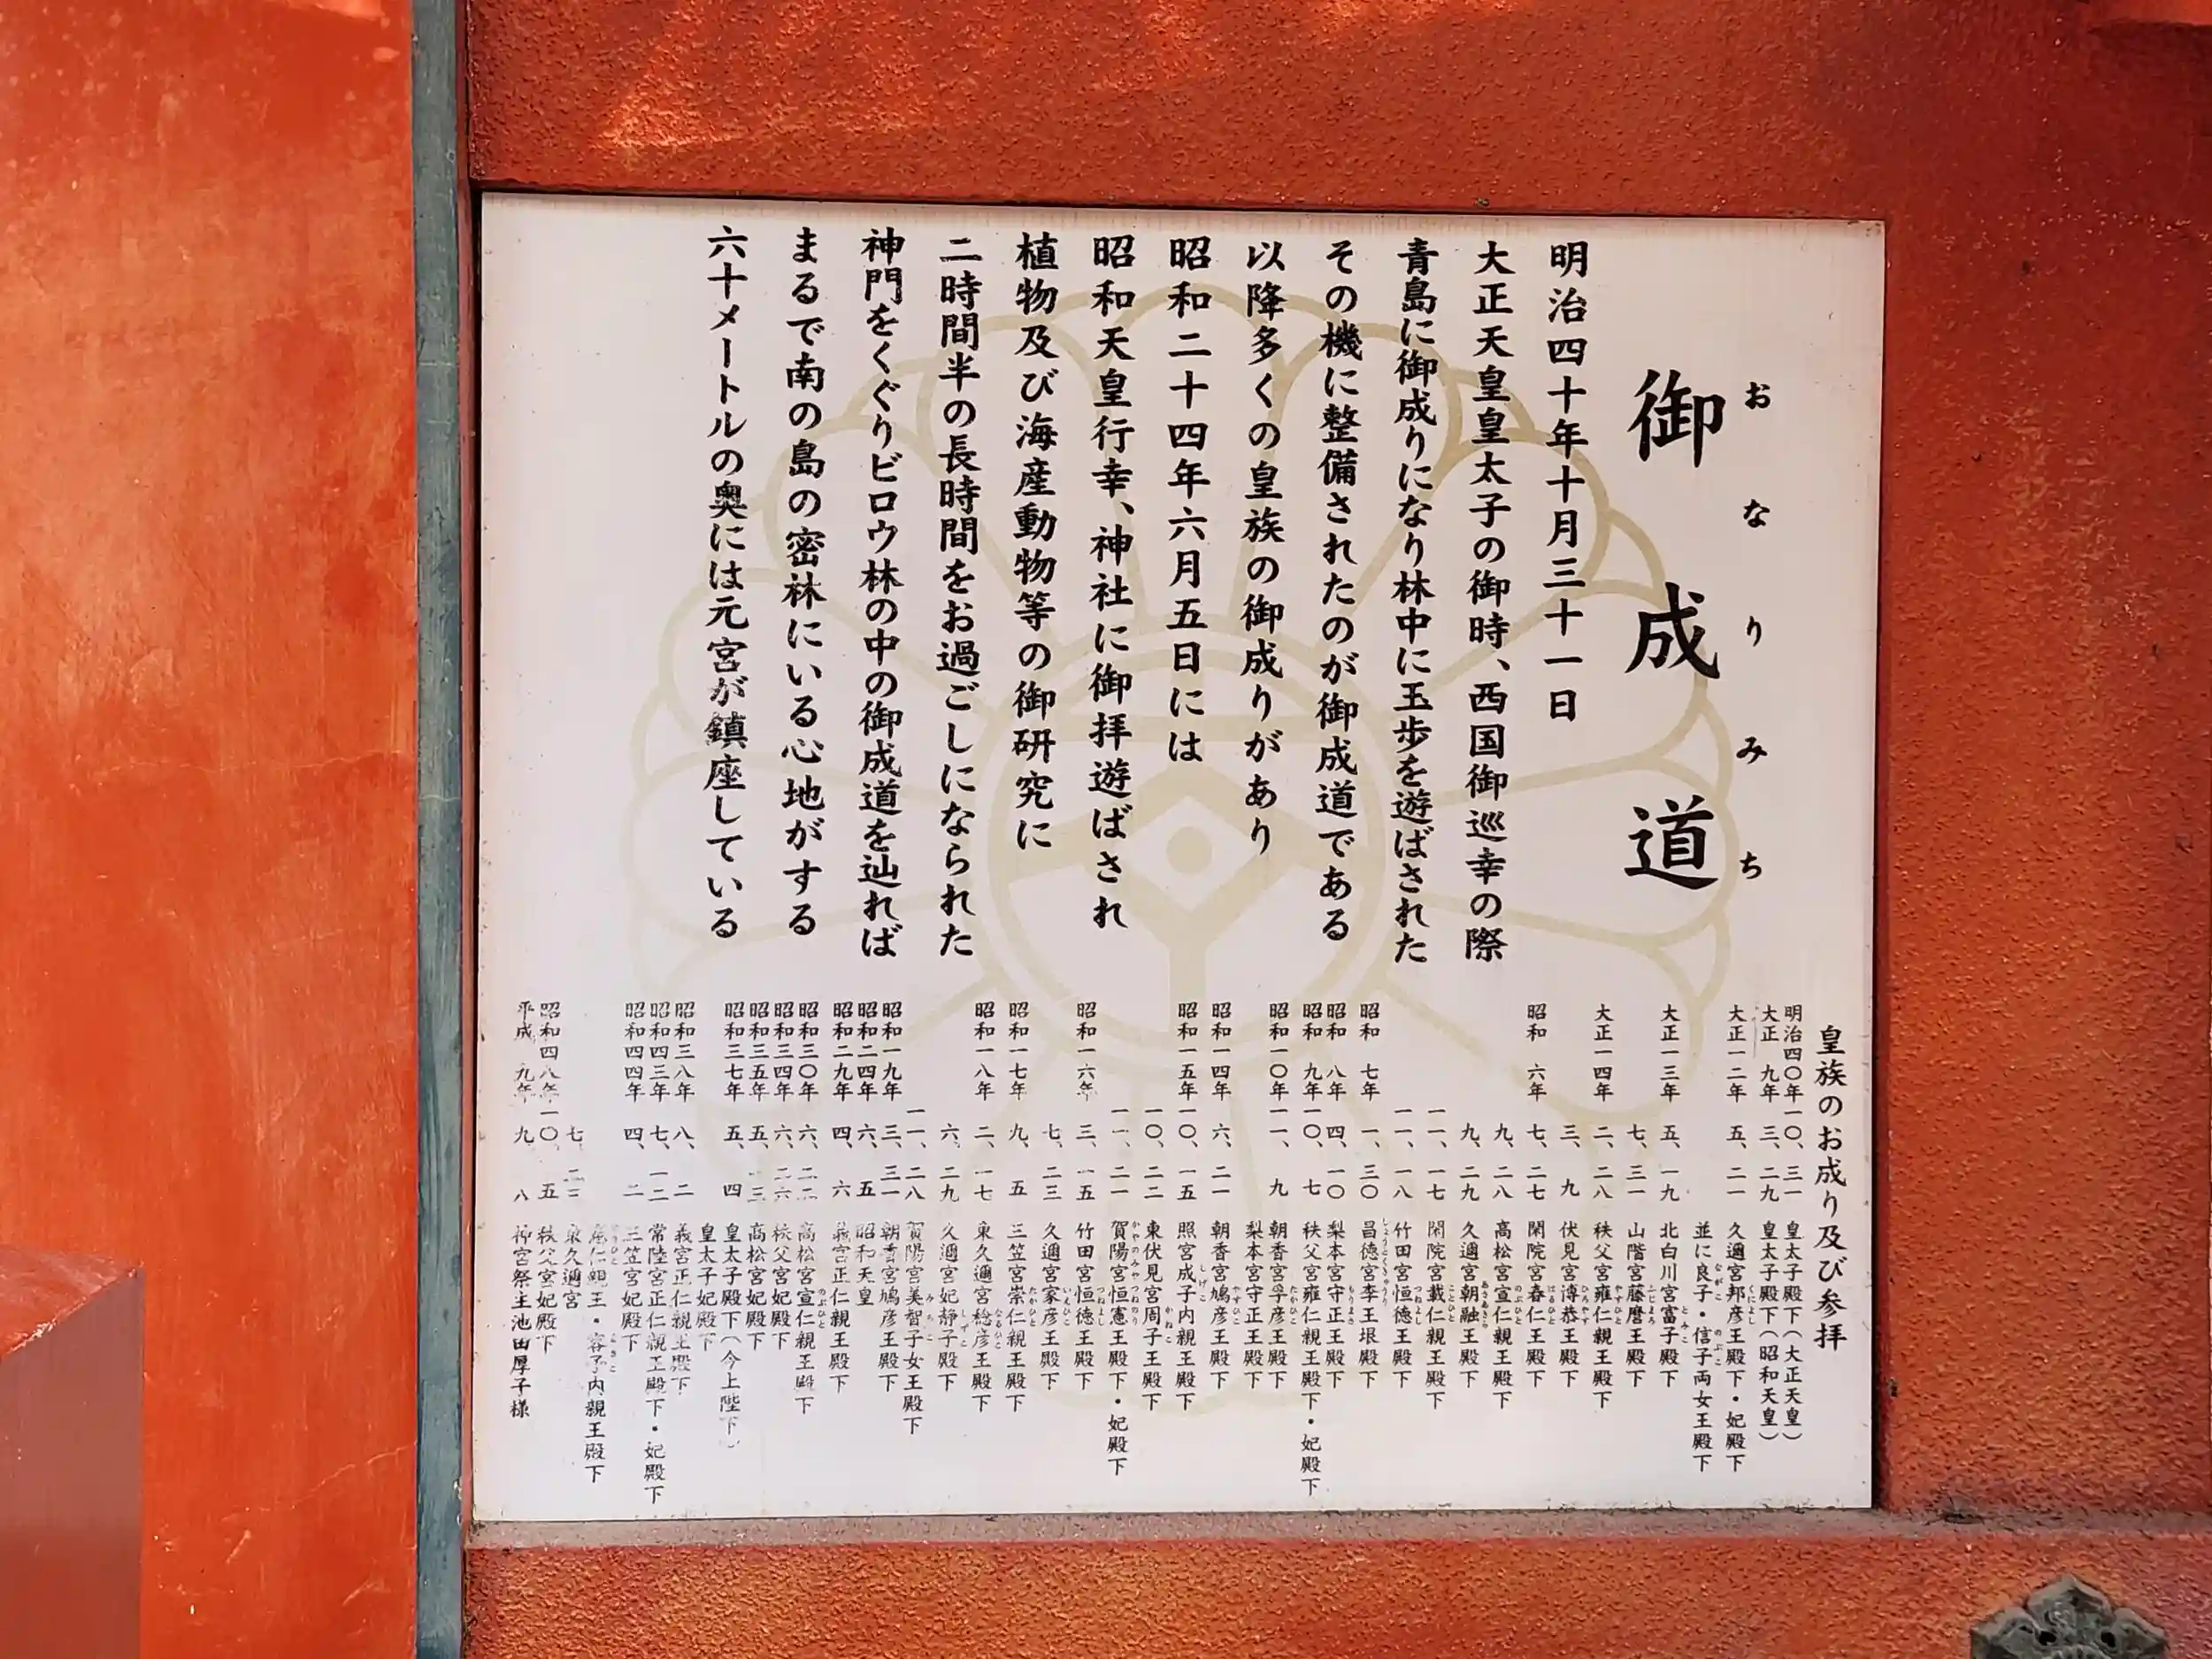 御成道
おなりみち
明治四十年十月三十一日
大正天皇皇太子の御時、西国御巡幸の際
青島に御成りになり林中に玉歩を遊ばされた
その機に整備されたのが御成道である
以降多くの皇族の御成りがあり
昭和二十四年六月五日には
昭和天皇行幸、神社に御拝遊ばされ
植物及び海産動物等の御研究に
二時間半の長時間をお過ごしになられた
神門をくぐりビロウ林の中の御成道を辿れば
まるで南の島の密林にいる心地がする
六十メートルの奥には元宮が鎮座している
皇族のお成り及び参拝
明治四〇年一〇、三一 皇太子殿下（大正天皇）
大正 九年 三、二九 皇太子殿下（昭和天皇）
大正一二年 五、二一 久邇宮邦彦王殿下・妃殿下
並に良子・信子両女王殿下
大正一三年 五、一九 北白川宮富子殿下
七、三一 山階宮藤麿王殿下
大正一四年 二、二八 秩父宮雍仁親王殿下
三、九 伏見宮博恭王殿下
昭和 六年 七、二七 閑院宮春仁王殿下
九、二八 高松宮宣仁親王殿下
九、二九 久邇宮朝融王殿下
一一、一七 閑院宮載仁親王殿下
一一、一八 竹田宮恒徳王殿下
昭和 七年 一、三〇 昌徳宮李王垠殿下
昭和 八年 四、一〇 梨本宮守正王殿下
昭和 九年一〇、七 秩父宮雍仁親王殿下・妃殿下
昭和一〇年一一、九 朝香宮孚彦王殿下
梨本宮守正王殿下
昭和一四年 六、二一 朝香宮鳩彦王殿下
昭和一五年一〇、一五 照宮成子内親王殿下
一〇、二二 東伏見宮周子王殿下
一一、二一 賀陽宮恒憲王殿下・妃殿下
昭和一六年 三、一五 竹田宮恒徳王殿下
七、二三 久邇宮家彦王殿下
昭和一七年 九、五 三笠宮崇仁親王殿下
昭和一八年 二、一七 東久邇宮稔彦王殿下
六、二九 久邇宮妃静子殿下
一一、二八 賀陽宮美智子女王殿下
昭和一九年 三、三一 朝香宮鳩彦王殿下
昭和二四年 六、五 昭和天皇
昭和二九年 四、六 義宮正仁親王殿下
昭和三〇年 六、二二 高松宮宣仁親王殿下
昭和三四年 六、二六 秩父宮妃殿下
昭和三五年 五、一三 高松宮妃殿下
昭和三七年 五、四 皇太子殿下（今上陛下）
皇太子妃殿下
昭和三八年 八、二 義宮正仁親王殿下
昭和四三年 七、一二 常陸宮正仁親王殿下・妃殿下
昭和四四年 四、二 三笠宮妃殿下
仁親王・容子内親王殿下
七、 東久邇宮
昭和四八年一〇、五 秩父宮妃殿下
平成 九年 九、八 神宮祭主池田厚子様